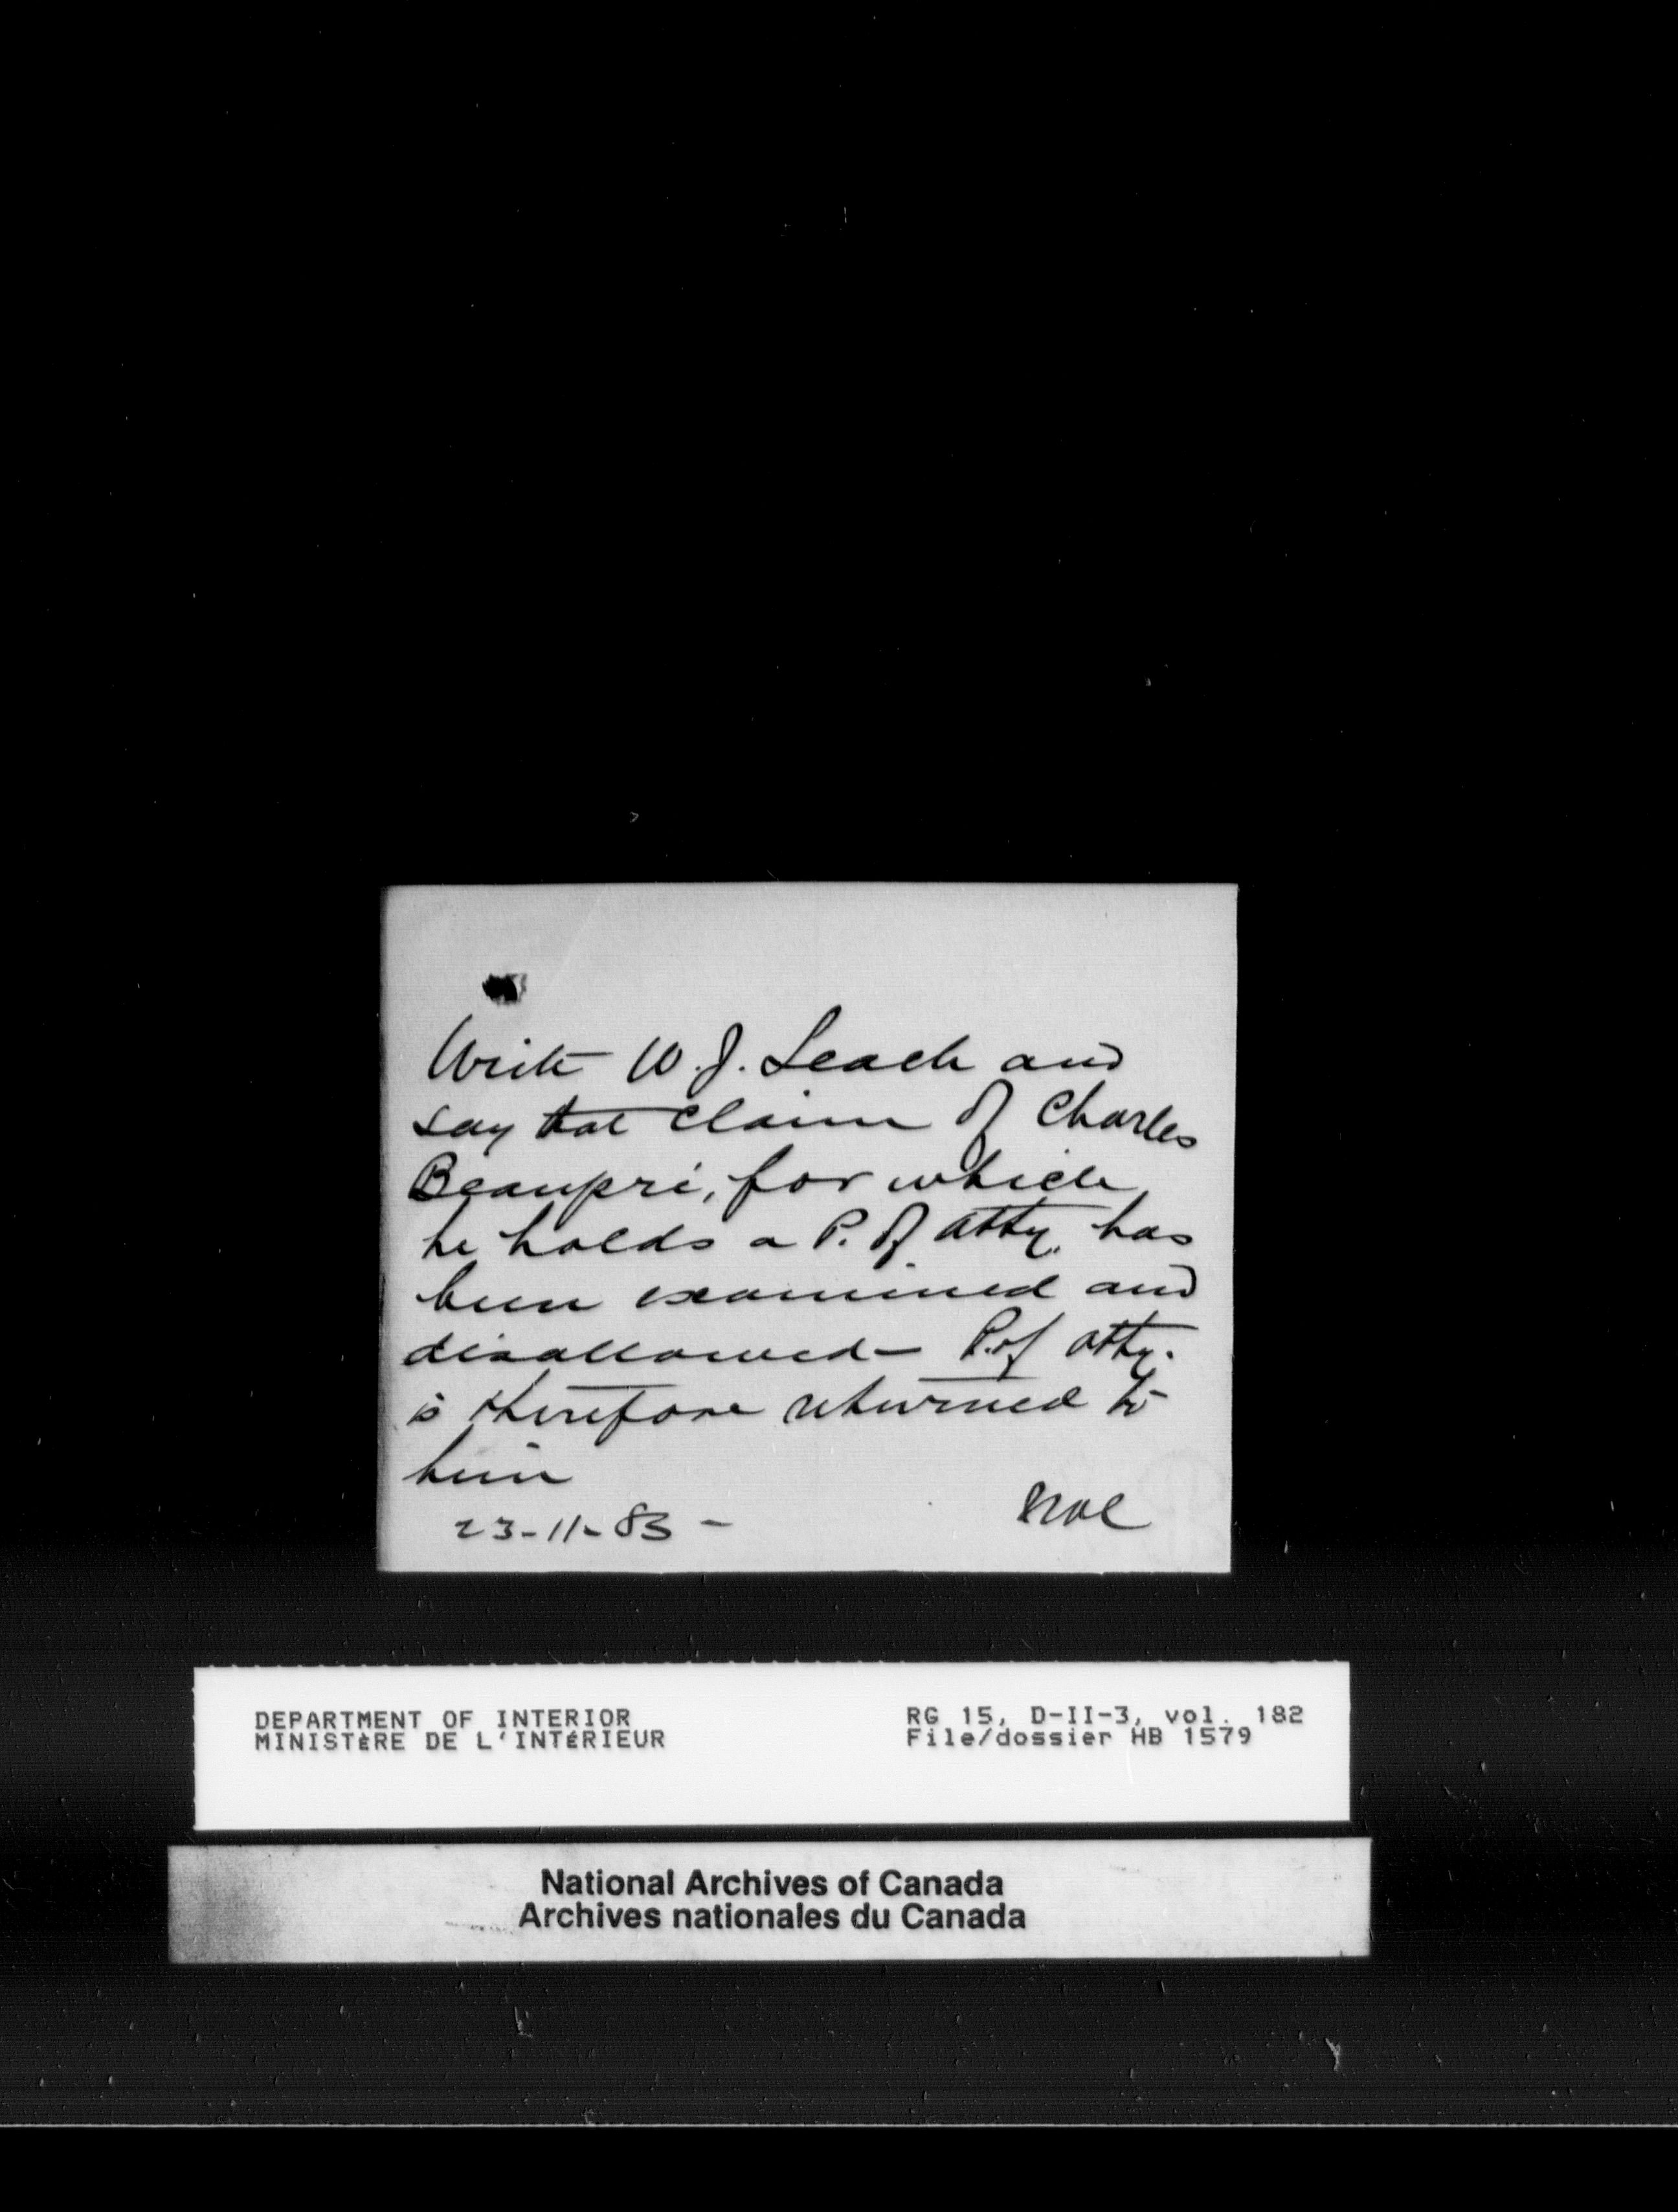 Write W. J. Leach and
say that claim of Charles
Beaupré, for which
he holds a P. of atty. has
been examined and
disallowed - P. of atty.
is therefore returned to
him
23-11-83 -
DEPARTMENT OF INTERIOR
MINISTÈRE DE L'INTÉRIEUR
RG 15, D-II-3, vol. 182
File/dossier HB 1579
National Archives of Canada
Archives nationales du Canada